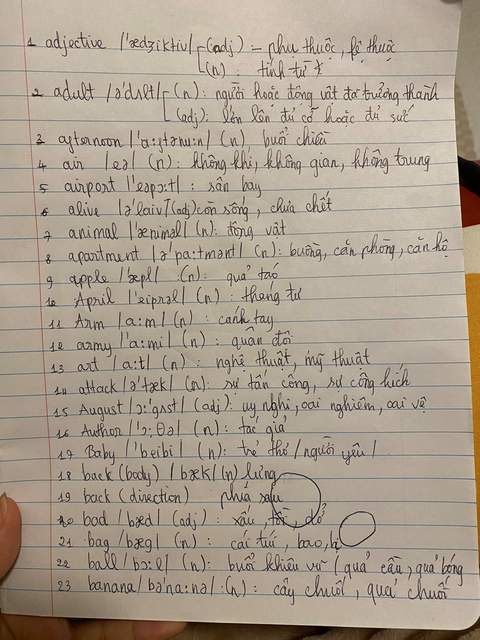 1 adjective /'ædʒiktiv/ (adj) - phụ thuộc, lệ thuộc
(n): tính từ
2 adult /ə'dʌlt/ (n): người hoặc động vật đã trưởng thành
(adj): lớn lên đủ cỡ hoặc đủ sức
3 afternoon /'ɑ:ftənu:n/ (n) buổi chiều
4 air /eə/ (n): không khí, không gian, không trung
5 airport /'eəpɔ:t/: sân bay
6 alive /ə'laiv/ (adj) còn sống, chưa chết
7 animal /'æniməl/ (n): động vật
8 apartment /ə'pa:tmənt/ (n): buồng, căn phòng, căn hộ
9 apple /'æpl/ (n): quả táo
10 April /'eiprəl/ (n): tháng tư
11 Arm /a:m/ (n): cánh tay
12 army /'a:mi/ (n): quân đội
13 art /a:t/ (n): nghệ thuật, mỹ thuật
14 attack /ə'tæk/ (n): sự tấn công, sự công kích
15 August /ɔ:'gʌst/ (adj): uy nghi, oai nghiêm, oai vệ
16 Author /'ɔ:θə/ (n): tác giả
17 Baby /'beibi/ (n): trẻ thơ/người yêu/
18 back (body) /bæk/ (n) lưng
19 back (direction) phía sau
20 bad /bæd/ (adj): xấu, tồi, dở
21 bag /bæg/ (n): cái túi, bao, bị
22 ball /bɔ:l/ (n): buổi khiêu vũ (quả cầu, quả bóng
23 banana /bə'na:nə/ (n): cây chuối, quả chuối